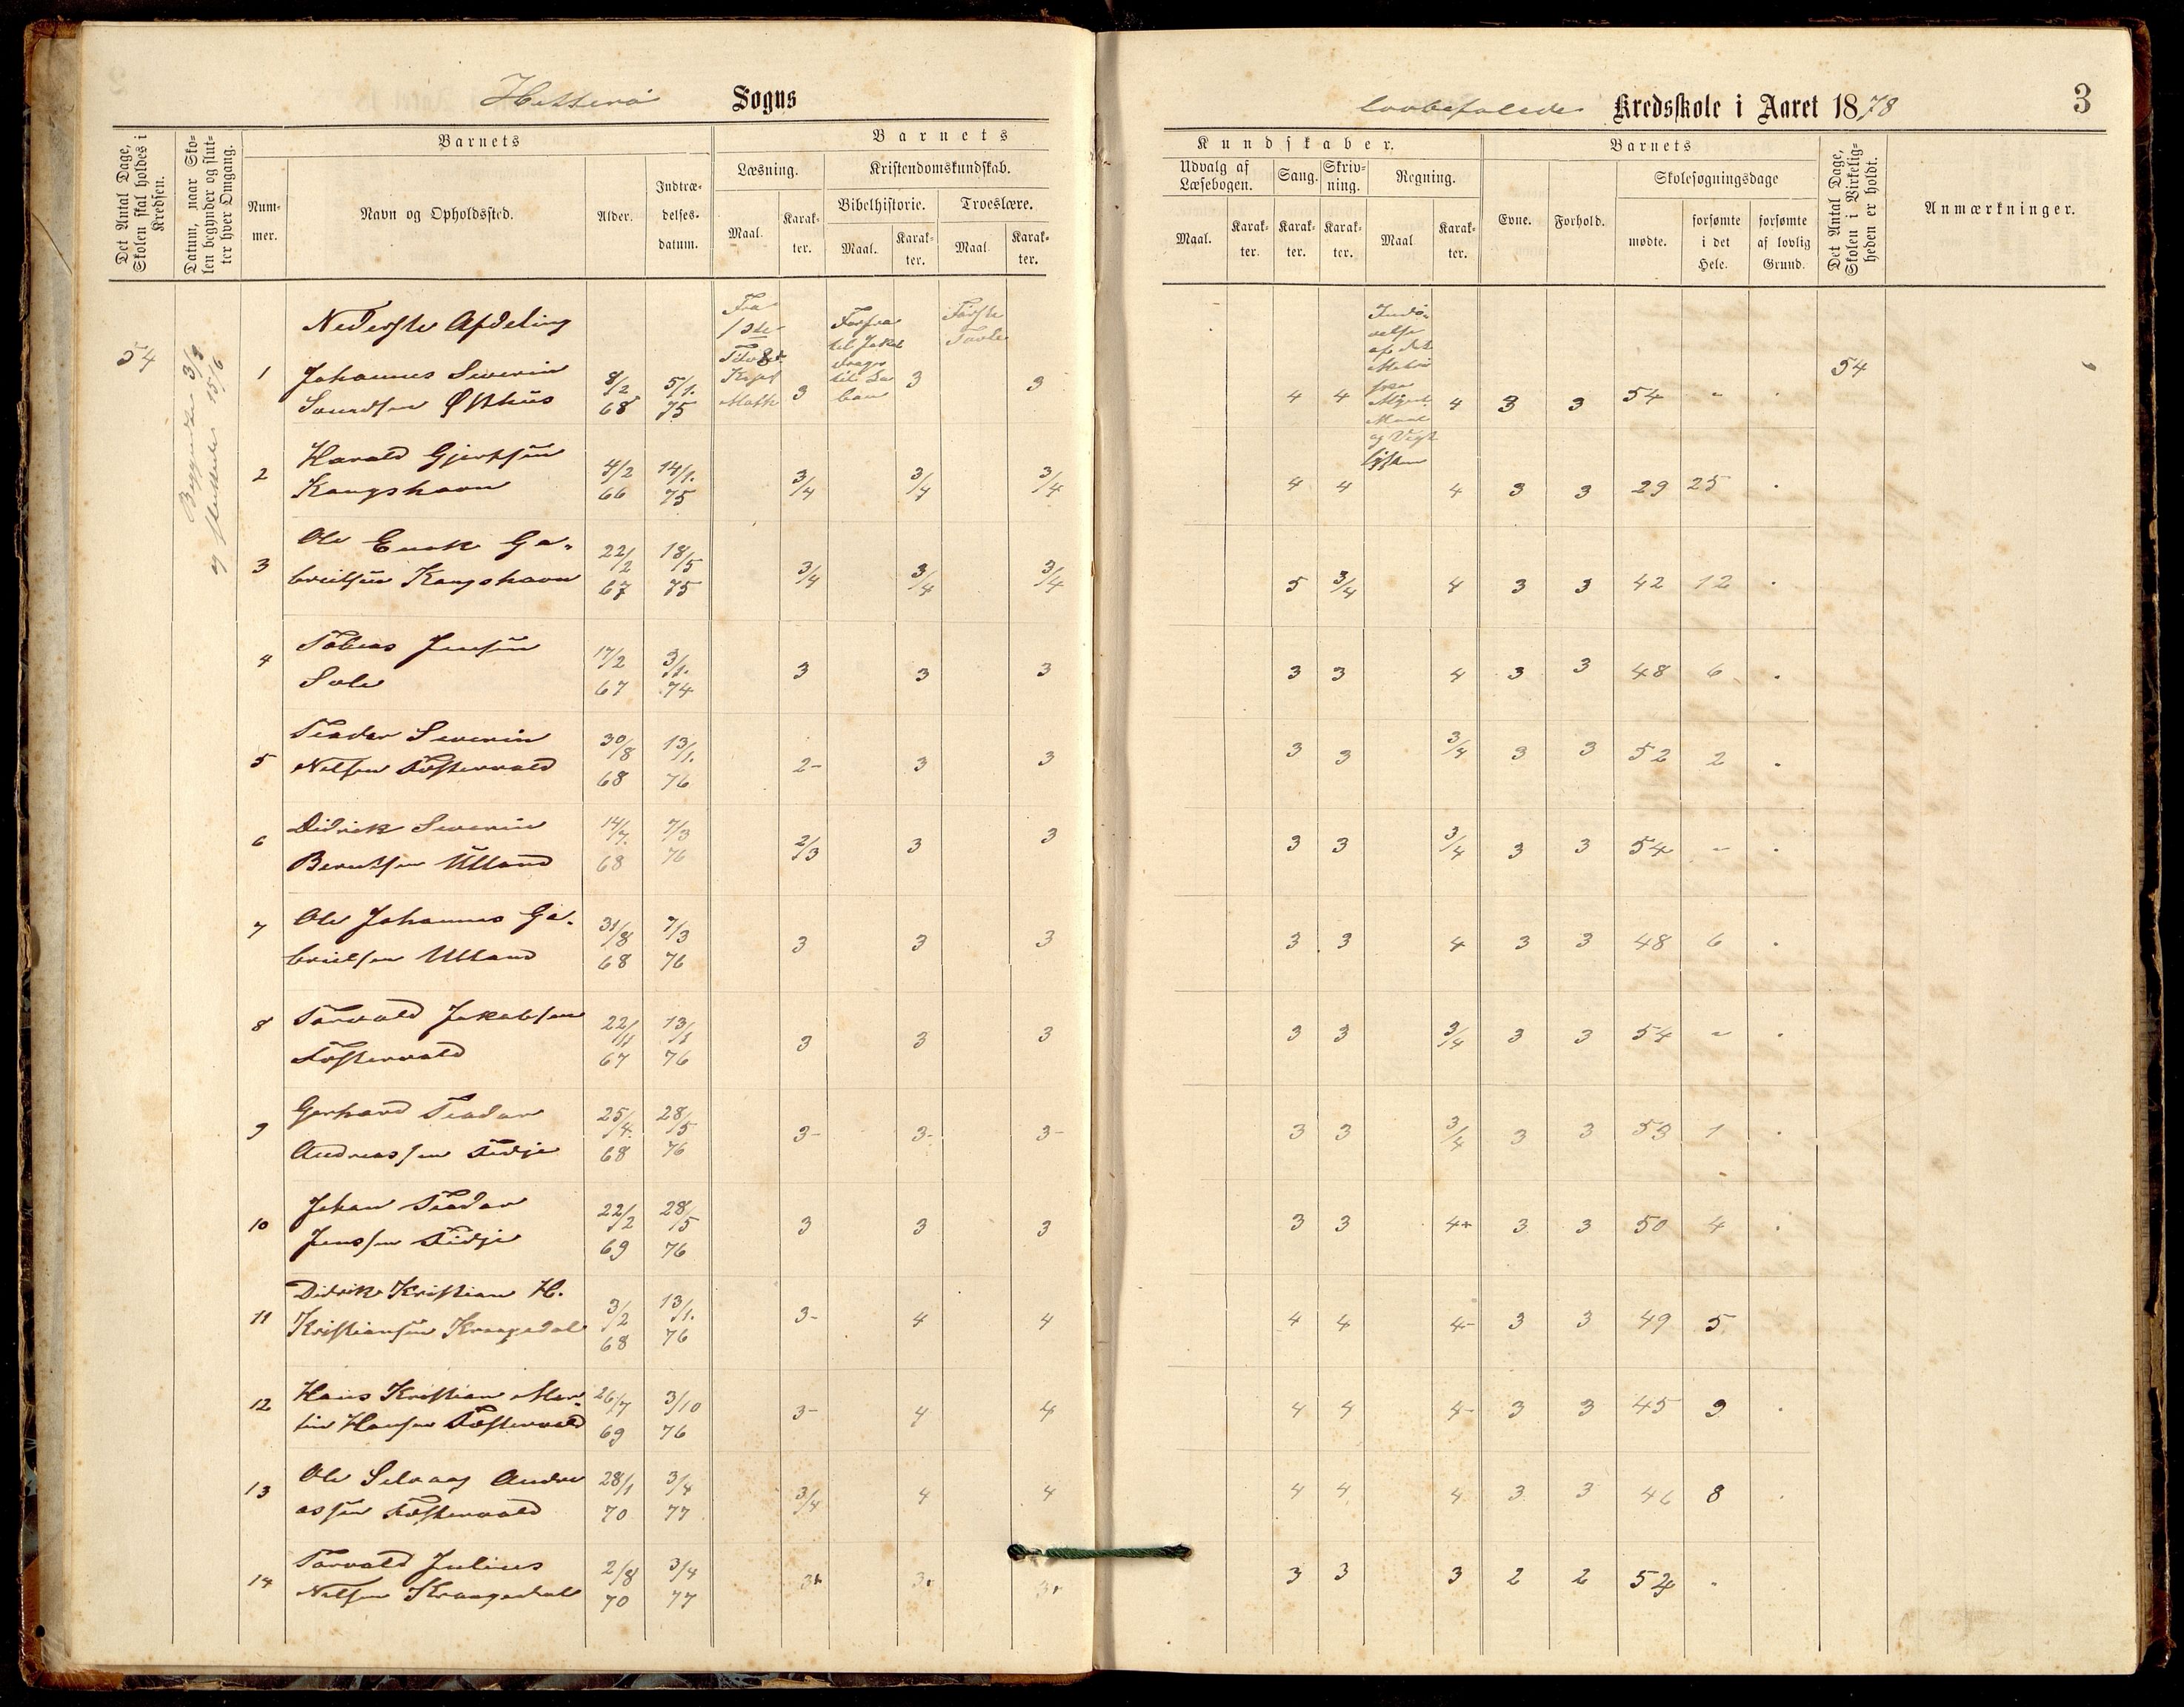 Hetterö Sogns
Kredsskole i Aaret 1878
3
Det Antal Dage, Skolen skal holdes i Kredsen.
Datum, naar Skolen begynder og slutter hver Omgang.
Barnets
Nummer.
Navn og Opholdssted.
Alder.
Indtrædelses-datum.
Barnets
Læsning.
Maal.
Karakter.
Kristendomskundskab.
Bibelhistorie.
Maal.
Karakter.
Troeslære.
Maal.
Karakter.
Kundskaber.
Udvalg af Læsebogen.
Maal.
Karakter.
Sang.
Karakter.
Skrivning.
Karakter.
Regning.
Maal
Karakter.
Barnets
Evne.
Forhold.
Skolesøgningsdage
mødte.
forsømte i det Hele.
forsømte af lovlig Grund.
Det Antal Dage, Skolen i Virkeligheden er holdt.
Anmærkninger.
Nederste Afdeling
54
Begyndte 3/9
og sluttede 15/6
Fra
Første
Tavle
54
1 Johannes Severin 8/2 5/1. 3 3 3 4 4 4 3 3 54 - .
68 75
2 Harald Gjertsen 4/2 14/1. 3/4 3/4 3/4 4 4 4 3 3 29 25 .
Kongshavn 66 75
3 Ole Enok Ga- 22/2 18/5 3/4 3/4 3/4 5 3/4 4 3 3 42 12 .
brielsen Kongshavn 67 75
4 Tobias Jensen 17/2 3/1. 3 3 3 3 3 4 3 3 48 6 .
67 74
5 Teodor Severin 30/8 13/1. 2- 3 3 3 3 3/4 3 3 52 2 .
Nelsen Fostervold 68 76
6 Didrik Severin 14/7. 7/3 2/3 3 3 3 3 3/4 3 3 54 - .
Berntsen Ulland 68 76
7 Ole Johannes Ga- 31/8 7/3 3 3 3 3 3 4 3 3 48 6 .
brielsen Ulland 68 76
8 Torvald Jakobsen 22/11 13/1 3 3 3 3 3 3/4 3 3 54 - .
Fostervold 67 76
9 Gerhard Teodor 25/4. 28/5 3- 3- 3- 3 3 3/4 3 3 53 1 .
Andreassen Tidje 68 76
10 Johan Teodor 22/2 28/5 3 3 3 3 3 4+ 3 3 50 4 .
Jenssen Tidje 69 76
11 Didrik Kristian H. 3/2 13/1. 3- 4 4 4 4 4- 3 3 49 5
Kristiansen Kraagedal 68 76
12 Hans Kristian Mar- 26/7 3/10 3- 4 4 4 4 4- 3 3 45 9 .
tin Hansen Fostervold 69 76
13 Ole Selvaag Andre 28/1 3/4 3/4 4 4 4 4 4 3 3 46 8 .
assen Fostervold 70 77
14 Torvald Julius 2/8 3/4 3+ 3+ 3+ 3 3 3 2 2 54 -
Nelsen Kraagedal 70 77